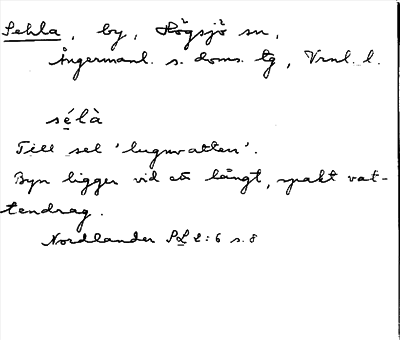 Sehla, by, Högsjö sn,
Ångermanl. s. doms. tg, Vrnl. l.
sélà
Till sel 'lugnvatten'.
Byn ligger vid ett långt, spakt vat-
tendrag.
Nordlander SL 2:6 s. 8